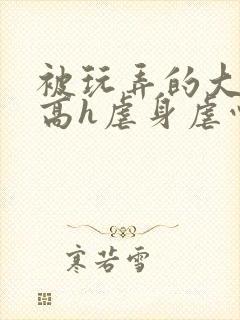 被玩弄的大
高h虐身虐心
寒若雪